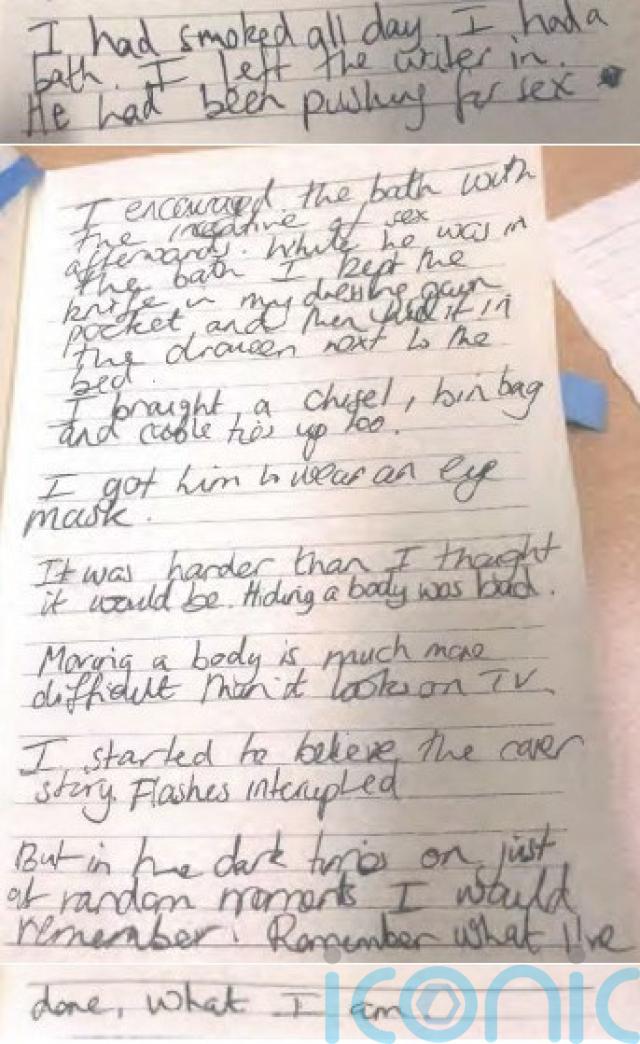 I had smoked all day. I had a
bath. I left the water in.
He had been pushing for sex
I encouraged the bath with
the incentive of sex
afterwards. While he was in
the bath I kept the
knife in my dressing gown
pocket and then hid it in
the drawer next to the
bed.
I brought a chisel, bin bag
and cable ties up too.
I got him to wear an eye
mask.
It was harder than I thought
it would be. Hiding a body was bad.
Moving a body is much more
difficult than it looks on TV.
I started to believe the cover
story. Flashes interupted
But in the dark times or just
at random moments I would
remember. Remember what I've
done, what I am.
iconic